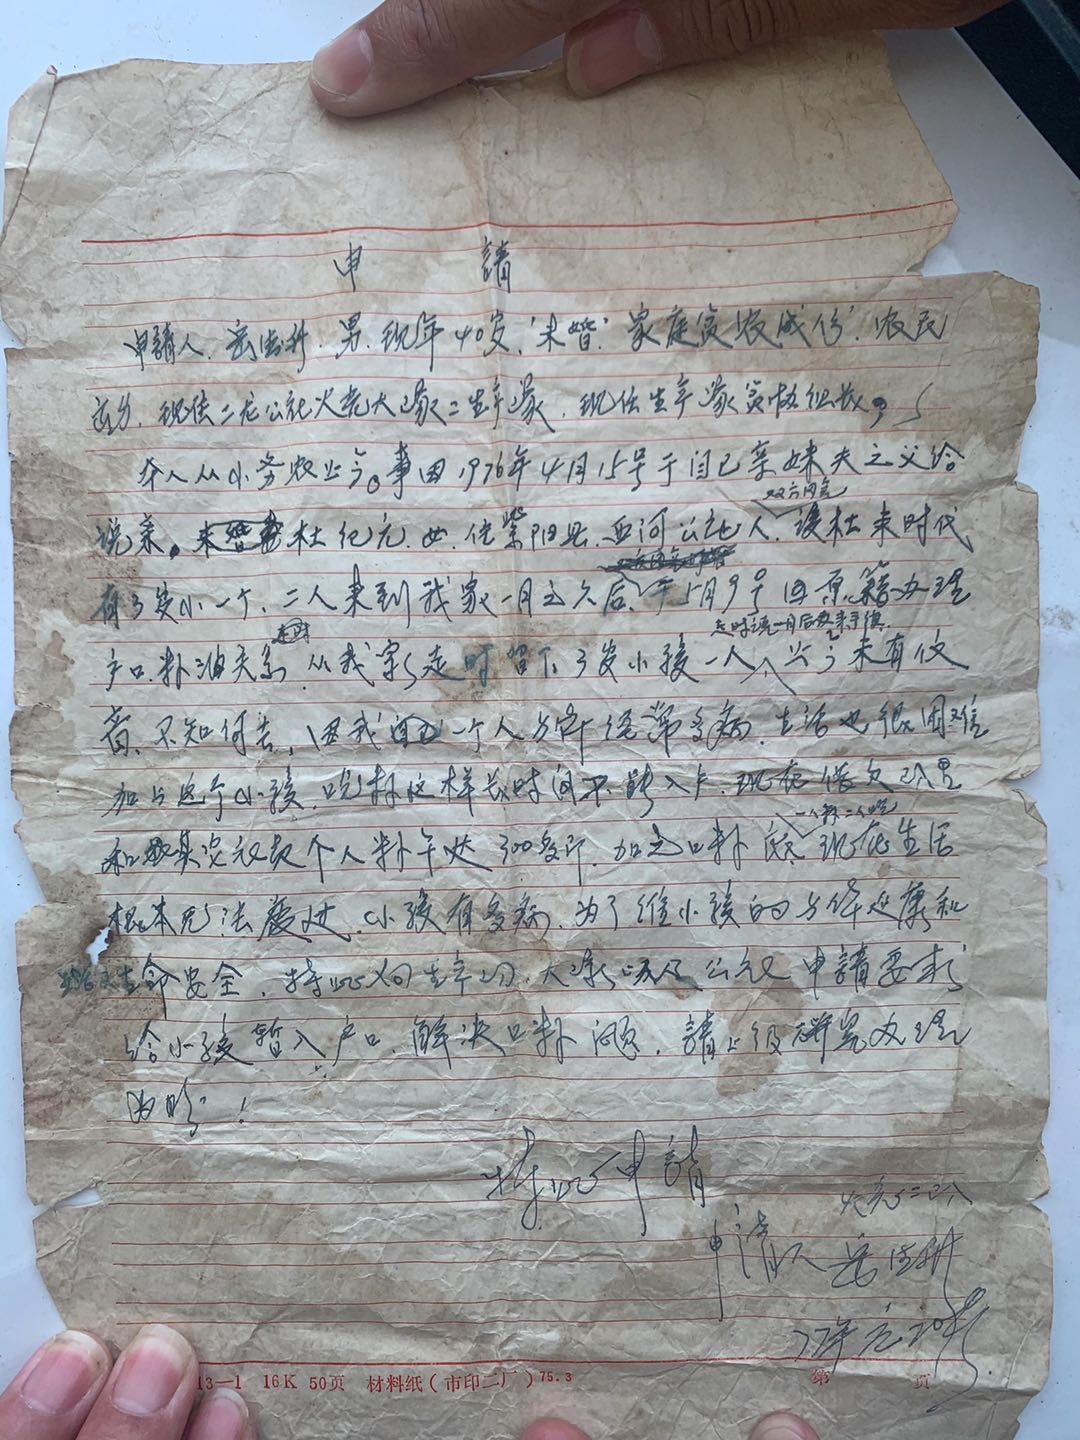 申 請
申請人 岳 男 现年40岁，未婚，家庭贫农成份，农民
现住二龙公社火光大队二生产队，现任生产队贫协组长。
本人从小务农至今。事由1976年4月15号于自己亲妹夫之父给
双方同意
说来。杜纪元，女，住紫阳县 河公社人，该杜来时代
有3岁小一个，二人来到我家一月之久后，于5月9号回原籍办理
走时说一月后就来手续
户口、粮油关系，从我家走时留下3岁小孩一人 至今未有仪
音，不知何去，但我 一个人身体经常多病，生活也很困难
加上这个小孩，吃粮这样长时间不能入户，现在借欠队里
一人粮二人吃
和其 个人粮 300多斤，加之口粮 现在生活
根本无法度过，小孩有多病，为了维小孩的身体健康和
生命安全，特此向生产队、大队 及公社申請要求
给小孩暂入户口，解决口粮问题，請上级研究处理
为盼！
特此申請
火光二队
申請人 岳
77年元20号
13—1 16K 50页 材料纸（市印二厂）75.3 第 页